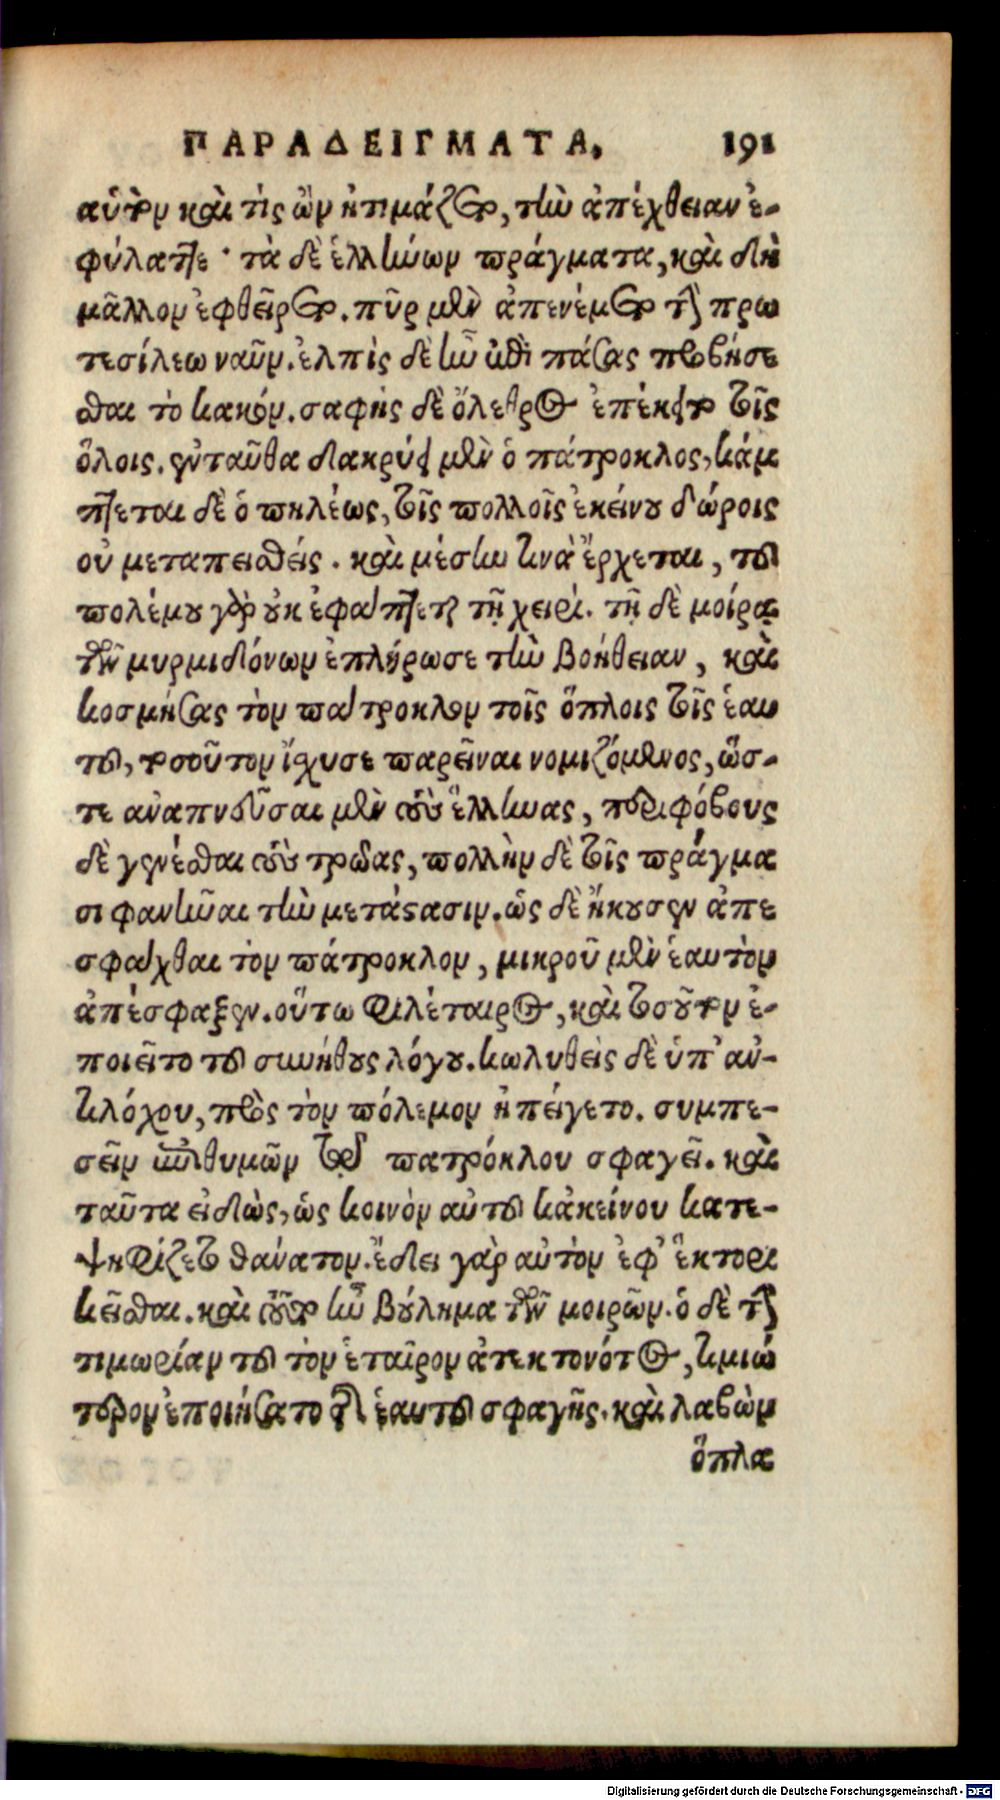 ΠΑΡΑΔΕΙΓΜΑΤΑ. 191
αὐτὸν καὶ τίς ὢν ἠτιμάζετο, τὴν ἀπέχθειαν ἐ-
φύλαττε · τὰ δὲ ἑλλήνων πράγματα, καὶ δὴ
μᾶλλον ἐφθείρετο. πῦρ μὲν ἀπενέμετο τὴν πρω
τεσίλεω ναῦν. ἐλπὶς δὲ ἦν ἐπὶ πάσας προβήσε
σθαι τὸ κακόν. σαφὴς δὲ ὄλεθρος ἐπέκειτο τοῖς
ὅλοις. ἐνταῦθα δακρύει μὲν ὁ πάτροκλος, κάμ
πτεται δὲ ὁ πηλέως, τοῖς πολλοῖς ἐκείνου δώροις
οὐ μεταπεισθείς. καὶ μέσην τινὰ ἔρχεται, τοῦ
πολέμου γὰρ οὐκ ἐφάπτεται τῇ χειρί. τῇ δὲ μοίρᾳ
τῶν μυρμιδόνων ἐπλήρωσε τὴν βοήθειαν, καὶ
κοσμήσας τὸν πάτροκλον τοῖς ὅπλοις τοῖς ἑαυ
τοῦ, τοσοῦτον ἴσχυσε παρεῖναι νομιζόμενος, ὥσ-
τε ἀναπνεῦσαι μὲν τοὺς ἕλληνας, περιφόβους
δὲ γενέσθαι τοὺς τρῶας, πολλὴν δὲ τοῖς πράγμα
σι φανῆναι τὴν μετάστασιν. ὡς δὲ ἤκουσεν ἀπε
σφάχθαι τὸν πάτροκλον, μικροῦ μὲν ἑαυτὸν
ἀπέσφαξεν. οὕτω φιλέταιρος, καὶ τοσοῦτον ἐ-
ποιεῖτο τοῦ συνήθους λόγου. κωλυθεὶς δὲ ὑπ' ἀν-
τιλόχου, πρὸς τὸν πόλεμον ἠπείγετο. συμπε-
σεῖν ἐπιθυμῶν τῷ πατρόκλου σφαγεῖ. καὶ
ταῦτα εἰδὼς, ὡς κοινὸν αὐτοῦ κἀκείνου κατε-
ψηφίζετο θάνατον. ἔδει γὰρ αὐτὸν ἐφ' ἕκτορι
κεῖσθαι. καὶ τοῦτο ἦν βούλημα τῶν μοιρῶν. ὁ δὲ τὴν
τιμωρίαν τοῦ τὸν ἑταῖρον ἀπεκτονότος, τιμιώ
τερον ἐποιήσατο τῆς ἑαυτοῦ σφαγῆς. καὶ λαβὼν
ὅπλα
Digitalisierung gefördert durch die Deutsche Forschungsgemeinschaft - DFG